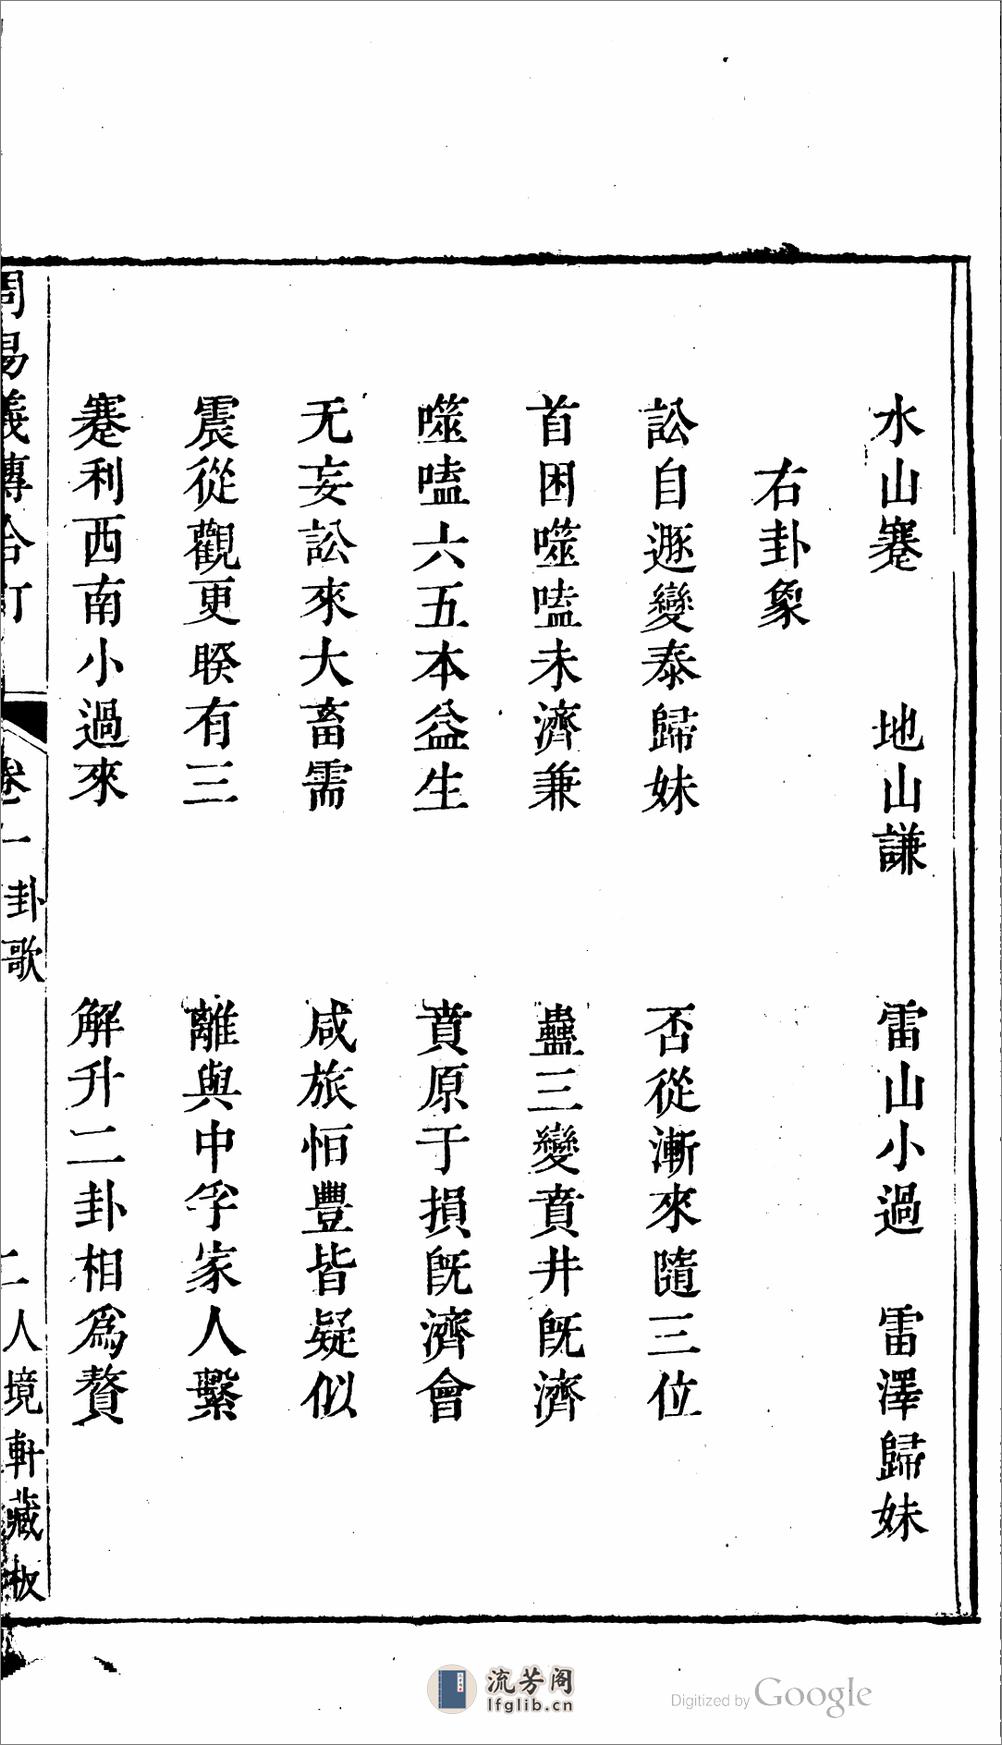 水山蹇　地山謙　雷山小過　雷澤歸妹
右卦象
訟自遯變泰歸妹　否從漸來隨三位
首困噬嗑未濟兼　蠱三變賁井旣濟
噬嗑六五本益生　賁原于損旣濟會
无妄訟來大畜需　咸旅恒豐皆疑似
震從觀更睽有三　離與中孚家人繫
蹇利西南小過來　解升二卦相爲贅
周易義傳合訂　卷一　卦歌　二　人境軒藏板
流芳阁
lfglib.cn
Digitized by Google